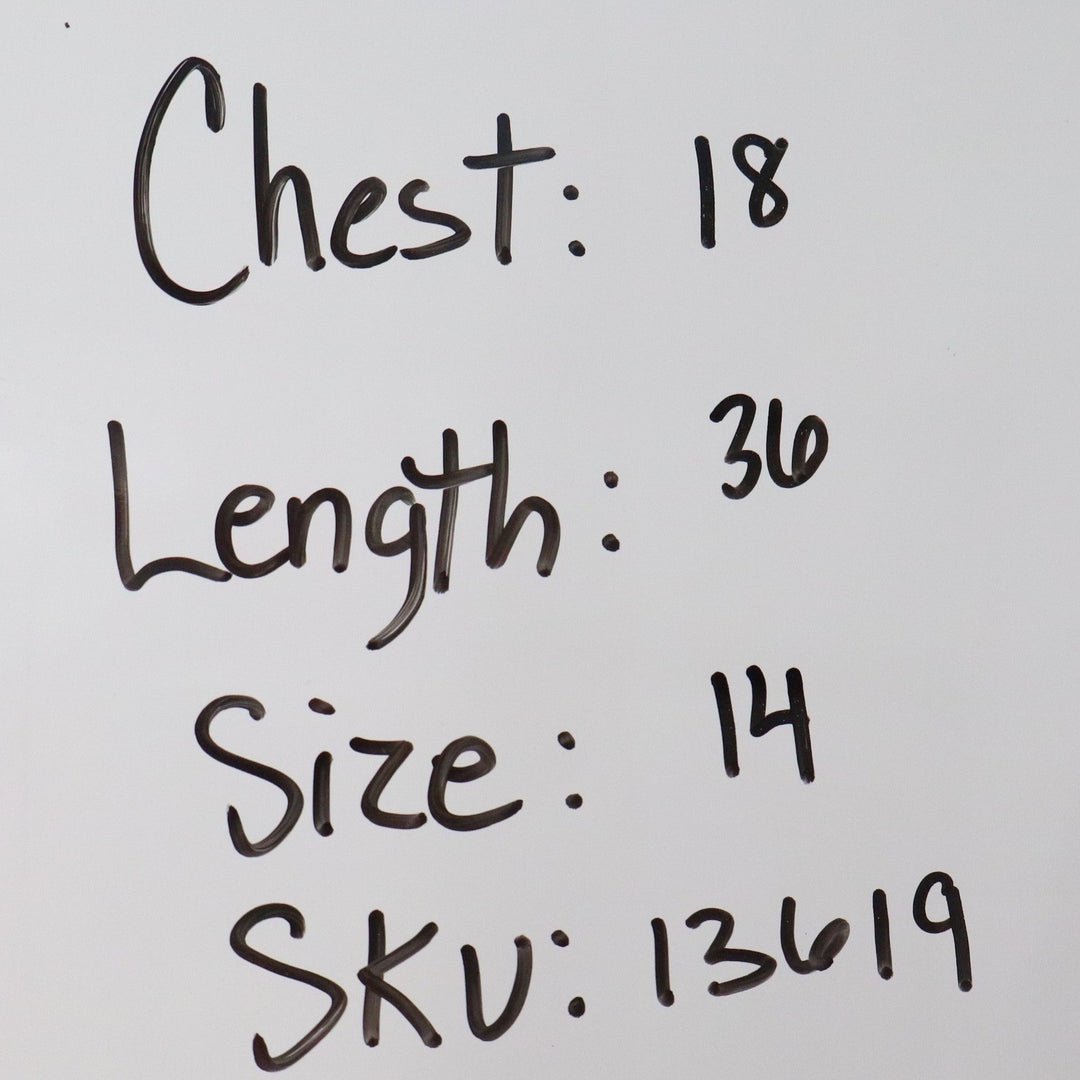 Chest: 18
Length: 36
Size: 14
SKU: 13619